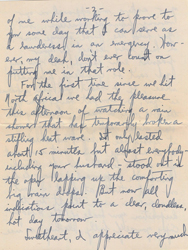 -2-
of me while working to prove to
you some day that I can serve as
a laundress in an emergency. How-
ever, my dear, don't ever count on
putting me in that role.
For the first time since we left
North Africa we had the pleasure
this afternoon of watching a rain
shower that has temporarily broke a
stifling heat wave. It only lasted
about 15 minutes but almost everybody
including your husband - stood out in
the open lapping up the comforting
big rain drops. But now all
indications point to a clear, cloudless,
hot day tomorrow
Sweetheart, I appreciate very much